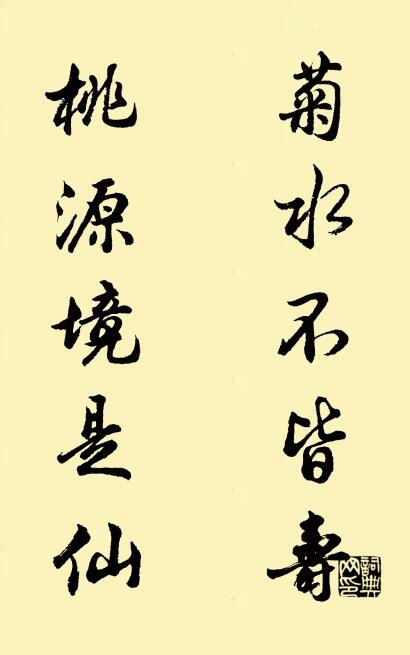 菊水不皆壽
桃源境是仙
詞典網印